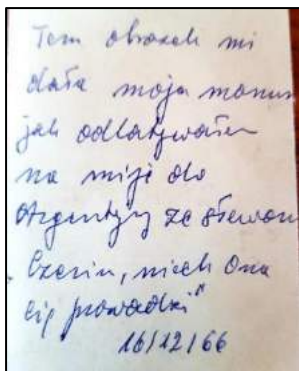 Ten obrazek mi
dała moja mamus
jak odlatywałem
na misje do
Argentyny ze słowami
niech Ona
cię prowadzi"
16/12/66